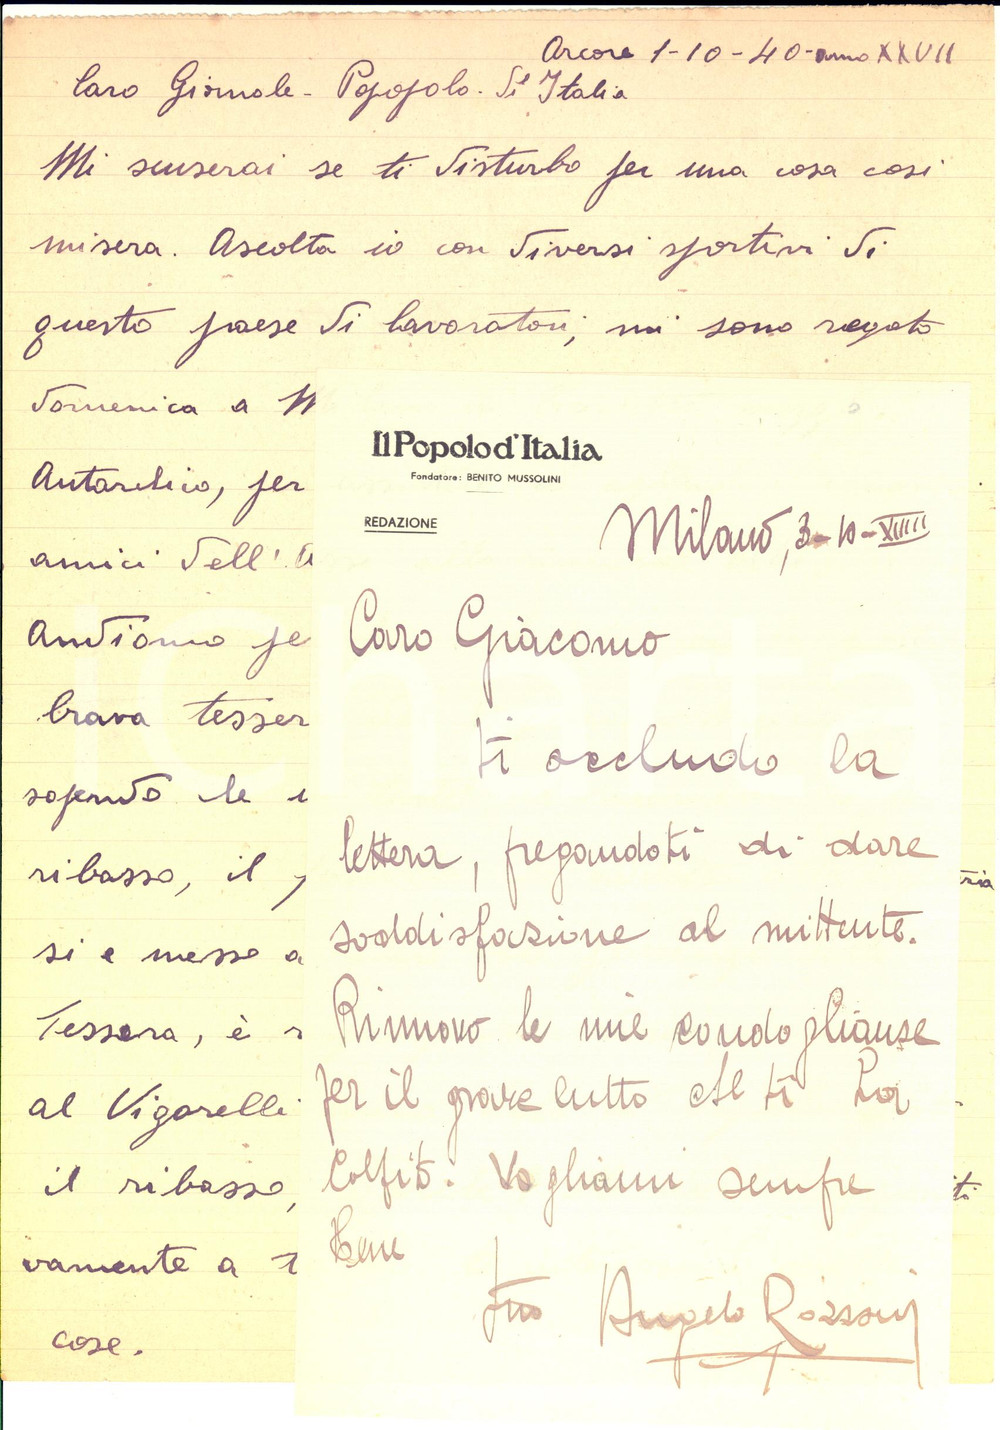 Arcore 1-10-40-anno XXVII
Caro Giornale - Popopolo - di Italia
Mi scuserai se ti disturbo per una cosa cosi
misera. Ascolta io con diversi sportivi di
questo paese di lavoratori, mi sono regato
domenica a
Antarchico, per
amici dell'
Andiamo pe
brava tesser
sapendo le
ribasso, il
si e messo a
Tessera, è
al Vigorelli
il ribasso,
vamente a
cose.
Il Popolo d'Italia
Fondatore: BENITO MUSSOLINI
REDAZIONE
Milano, 3-10-XVIIII
Caro Giacomo
ti accludo la
lettera, pregandoti di dare
soddisfazione al mittente.
Rinnovo le mie condoglianze
per il grave lutto che ti ha
colpito. Vogliami sempre
bene
tuo Angelo Rozzoni